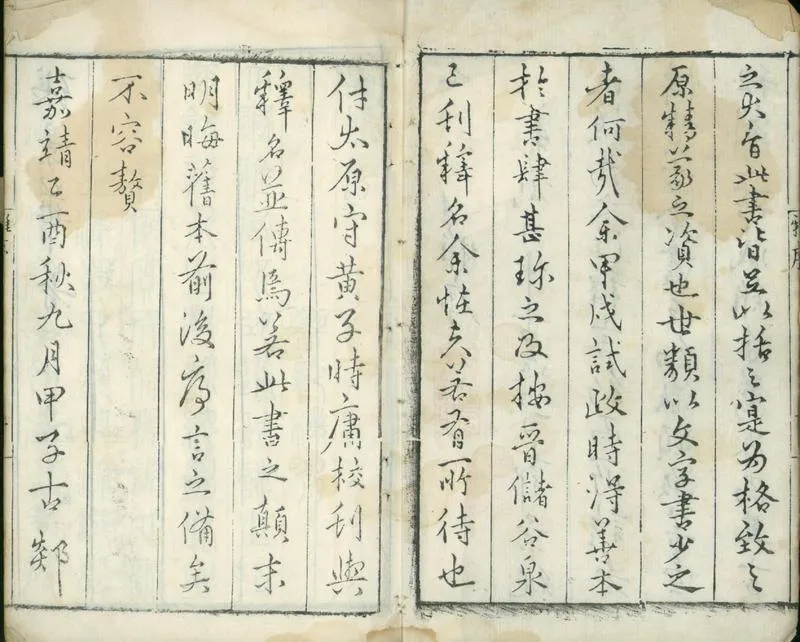 之大旨此書皆足以括之寔为格致之
原精義之資也世類以文字書少之
者何哉余甲戌試政時得善本
於書肆甚珍之及按晉儲谷泉
已刊釋名余恠夫若有所待也
付太原守黄子時庸校刊與
釋名並傳焉若此書之顛末
明晦舊本前後序言之備矣
不容贅
嘉靖乙酉秋九月甲子古郯